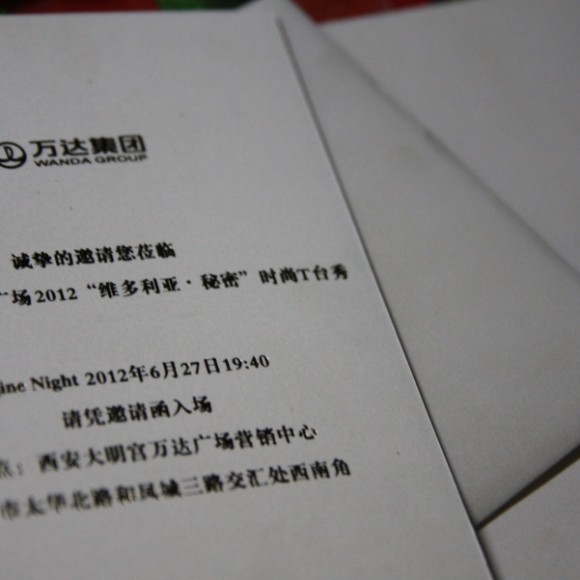 万达集团
WANDA GROUP
诚挚的邀请您莅临
广场2012“维多利亚·秘密”时尚T台秀
ine Night 2012年6月27日19:40
请凭邀请函入场
点：西安大明宫万达广场营销中心
市太华北路和凤城三路交汇处西南角